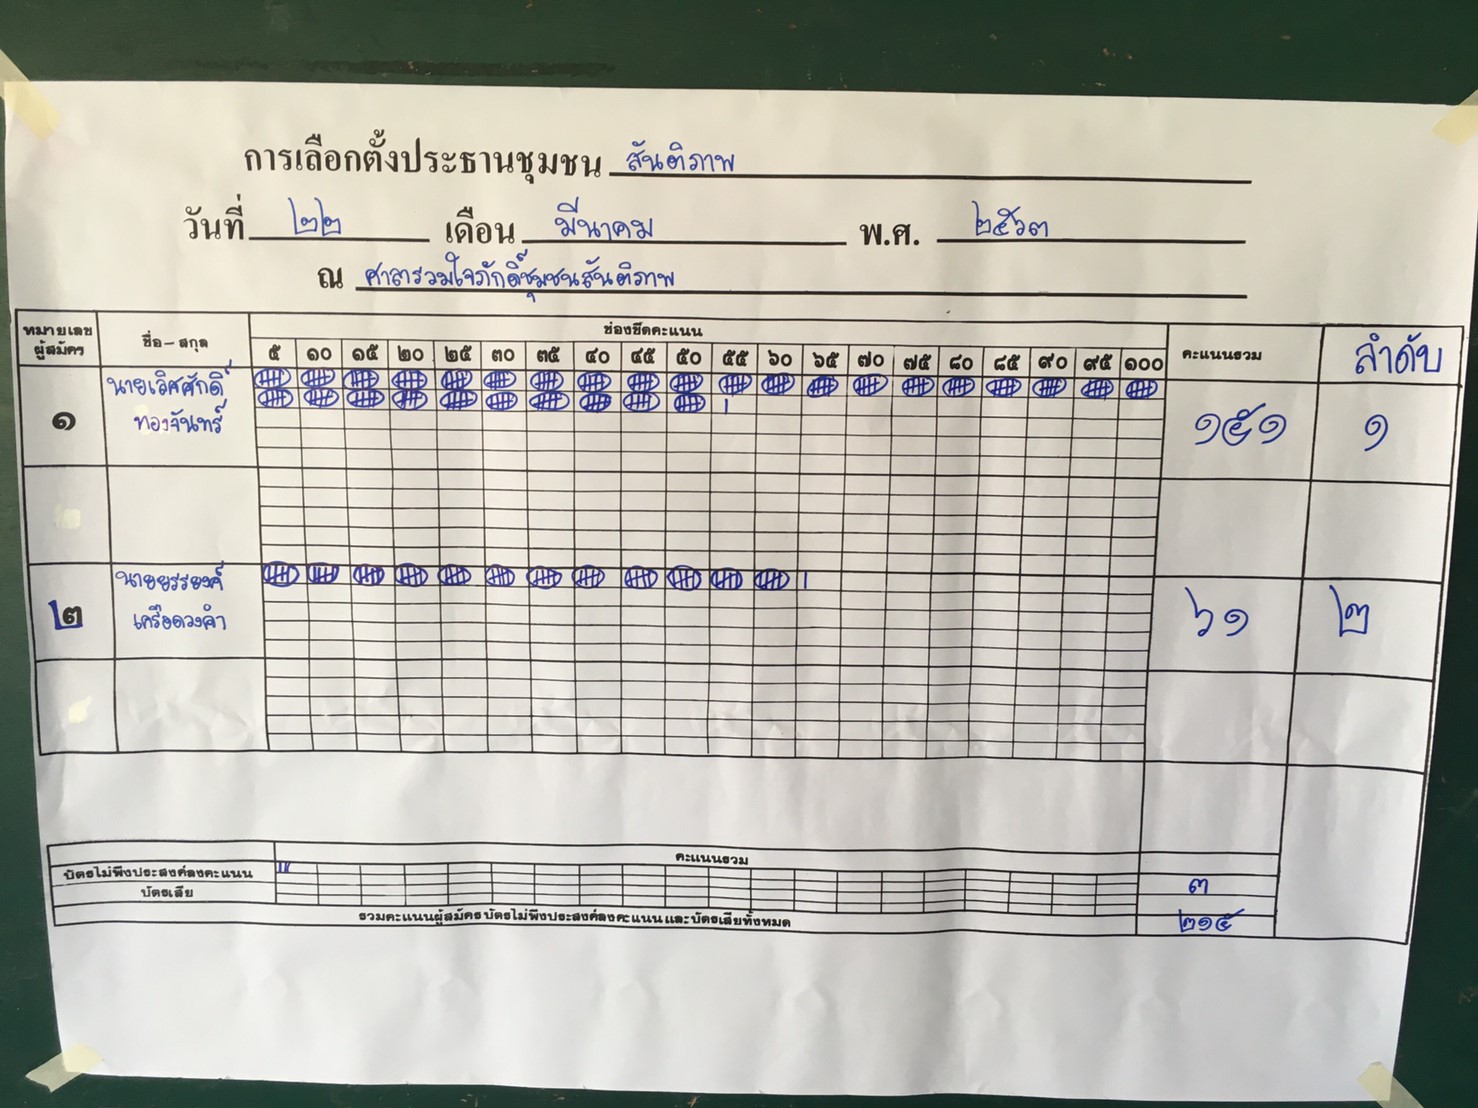 การเลือกตั้งประธานชุมชน สันติภาพ
วันที่ ๒๒ เดือน มีนาคม พ.ศ. ๒๕๖๓
ณ ศาลารวมใจภักดิ์ชุมชนสันติภาพ
หมายเลขผู้สมัคร ชื่อ-สกุล ช่องขีดคะแนน คะแนนรวม ลำดับ
๕ ๑๐ ๑๕ ๒๐ ๒๕ ๓๐ ๓๕ ๔๐ ๔๕ ๕๐ ๕๕ ๖๐ ๖๕ ๗๐ ๗๕ ๘๐ ๘๕ ๙๐ ๙๕ ๑๐๐
๑ นายเลิศศักดิ์ ๑๕๑ ๑
ทองจันทร์
๒ ๖๑ ๒
เครือดวงคำ
คะแนนรวม
บัตรไม่พึงประสงค์ลงคะแนน ๓
บัตรเสีย
รวมคะแนนผู้สมัคร บัตรไม่พึงประสงค์ลงคะแนน และบัตรเสียทั้งหมด ๒๑๕